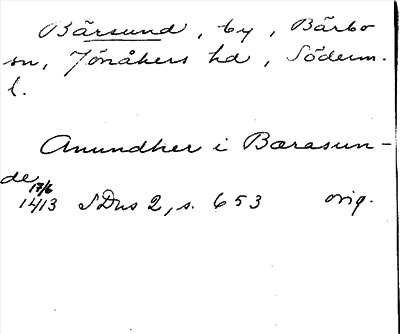 Bärsund, by, Bärbo
sn, Jönåkers hd, Söderm.
l.
Anundher i Bærasun-
de
17/6
1413 SDns 2, s. 653 orig.